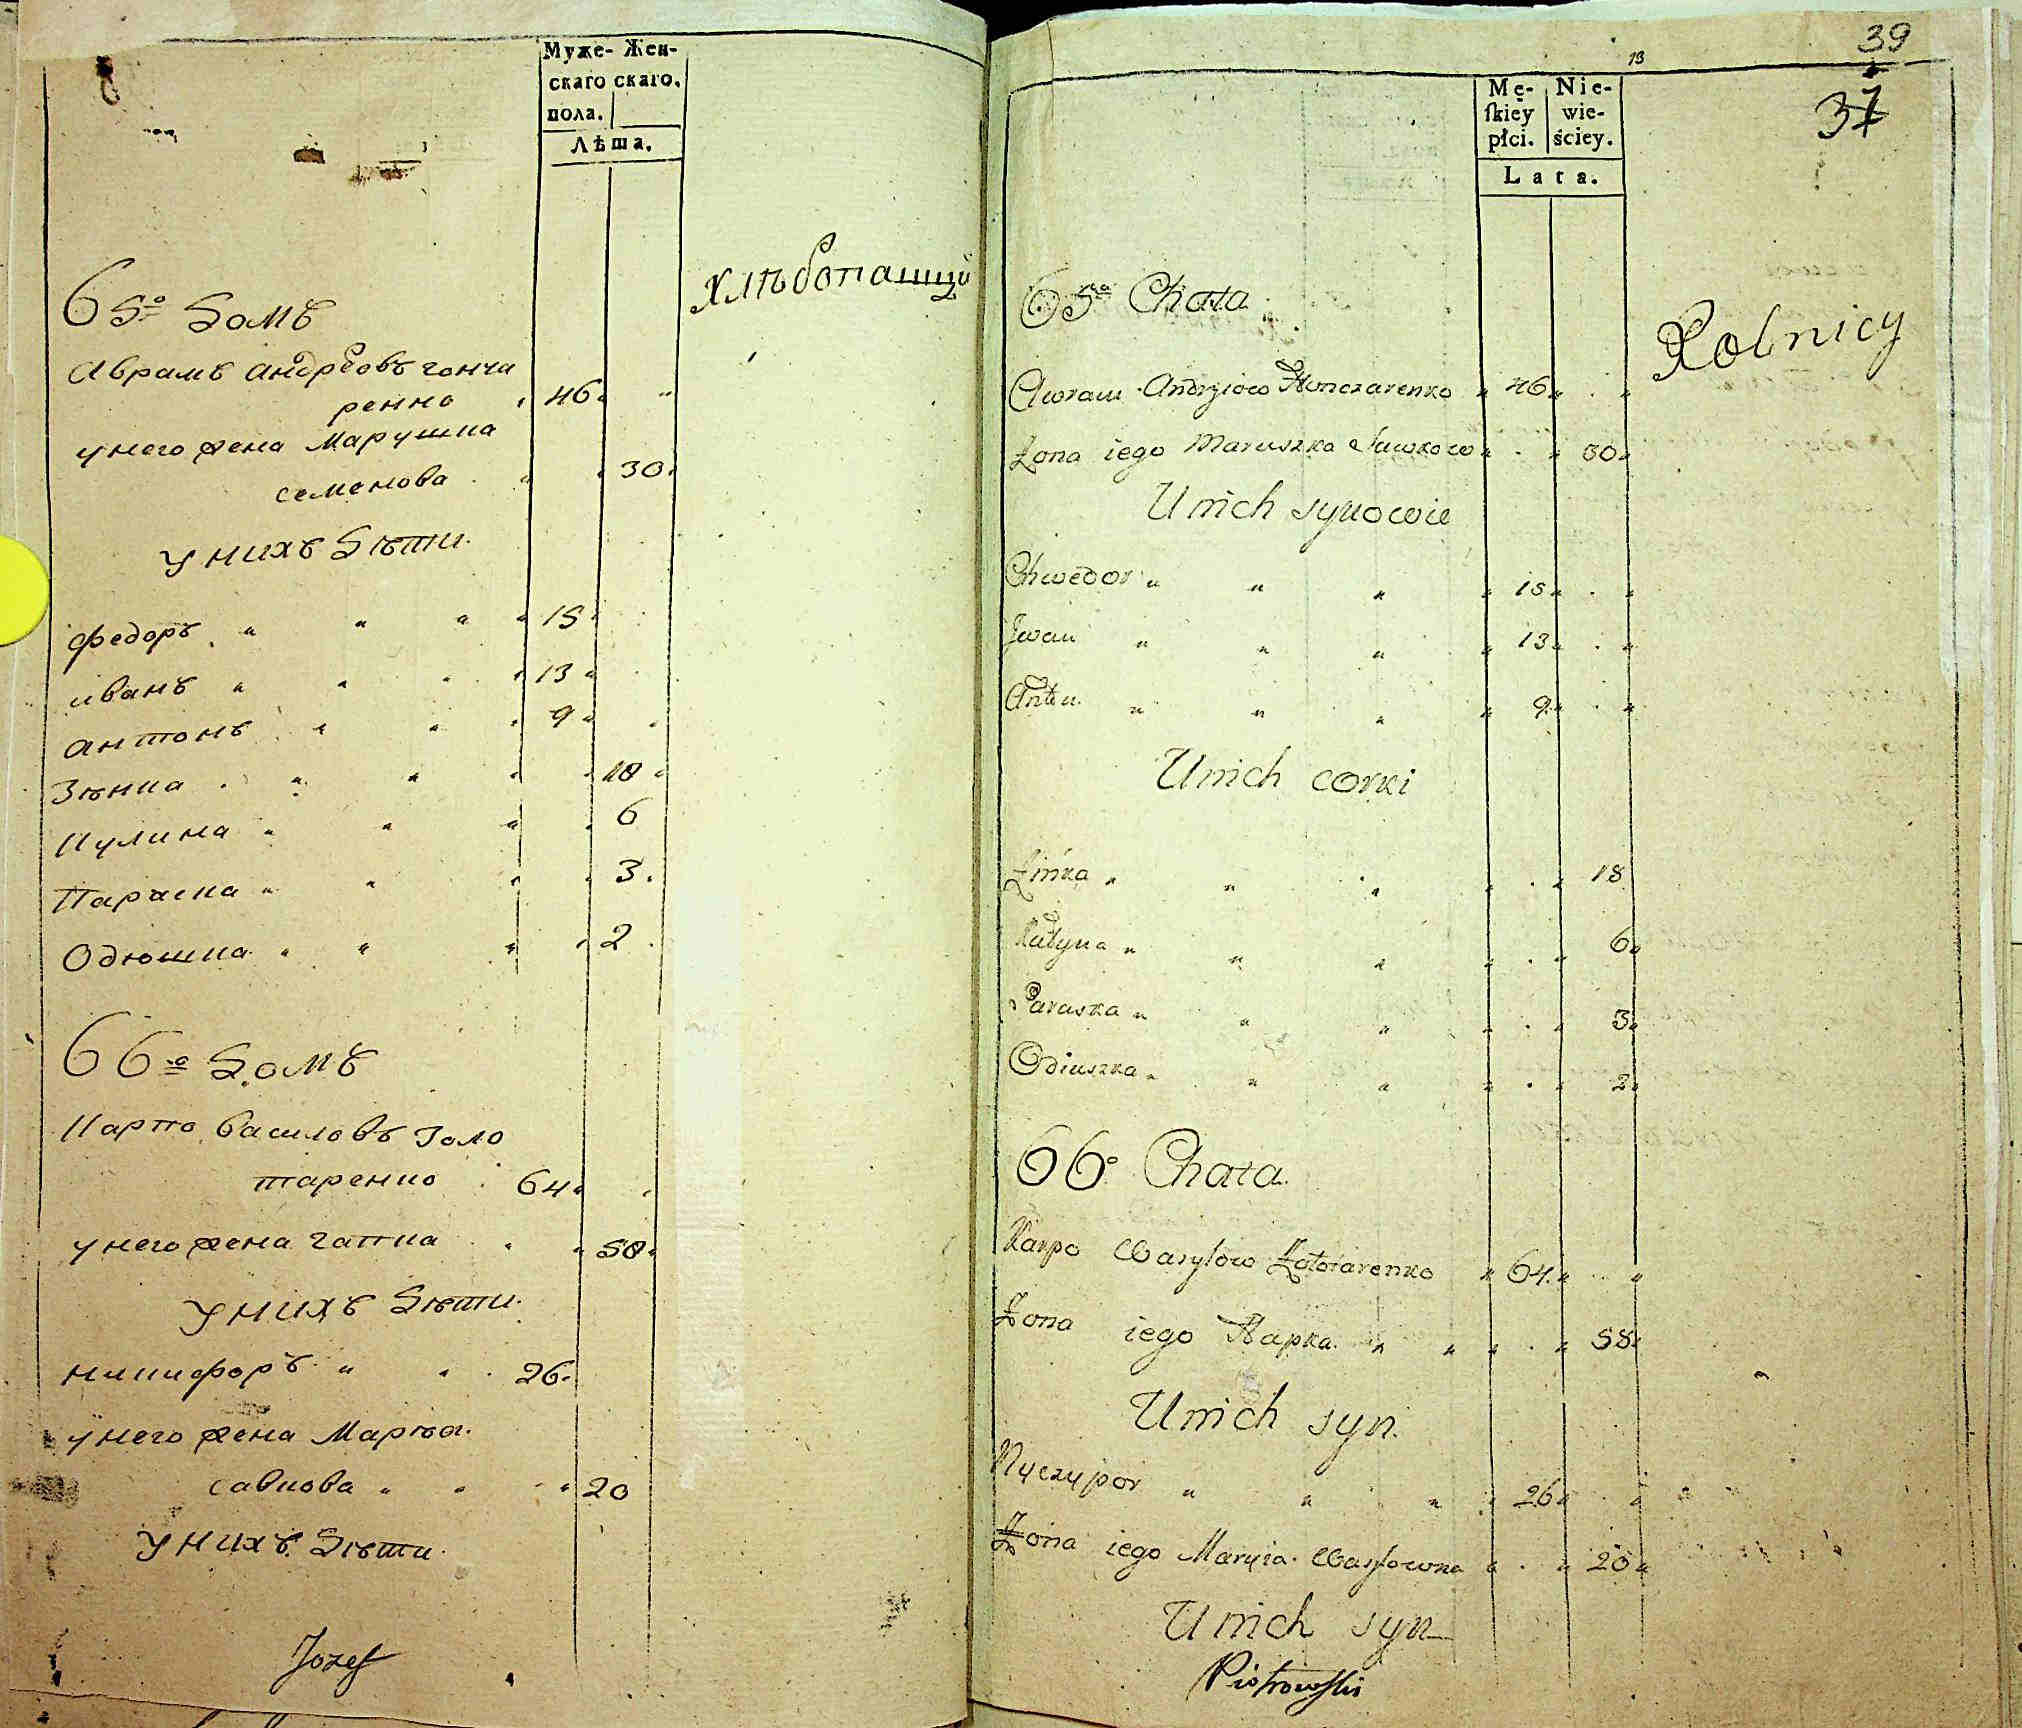 Муже- Жен-
скаго скаго.
пола.
Лѣта.
Хлѣбопашцы
65º Домъ
Аврамъ Андреовъ Гонча
ренко 46
у него жена Марушка
Семенова 30
у нихъ Дѣти.
Федоръ 15
Иванъ 13
Антонъ 9
Зѣнка 18
Кулина 6
Параска 3
Одюшка 2
66º Домъ
Карпо Василовъ Золо
таренко 64
у него жена Гапка 58
у нихъ Дѣти.
Никифоръ 26
у него жена Маръя
Савкова 20
у нихъ Дѣти
Jozef
39
13
37
Mę- Nie-
ſkiey wie-
płci. ściey.
Lata.
Rolnicy
65ta Chata
Awram Andrziow Honczarenko 46
Żona iego Maruszka 30
U nich synowie
Chwedor 15
Iwan 13
Anton 9
U nich corki
Zińka 18
Kulyna 6
Paraska 3
Odiuszka 2
66º Chata
Karpo Wasylow Zołotarenko 64
Żona iego Hapka 58
U nich syn.
Nyczypor 26
Żona iego Maryia Wasylowna 20
U nich syn
Piotrowski